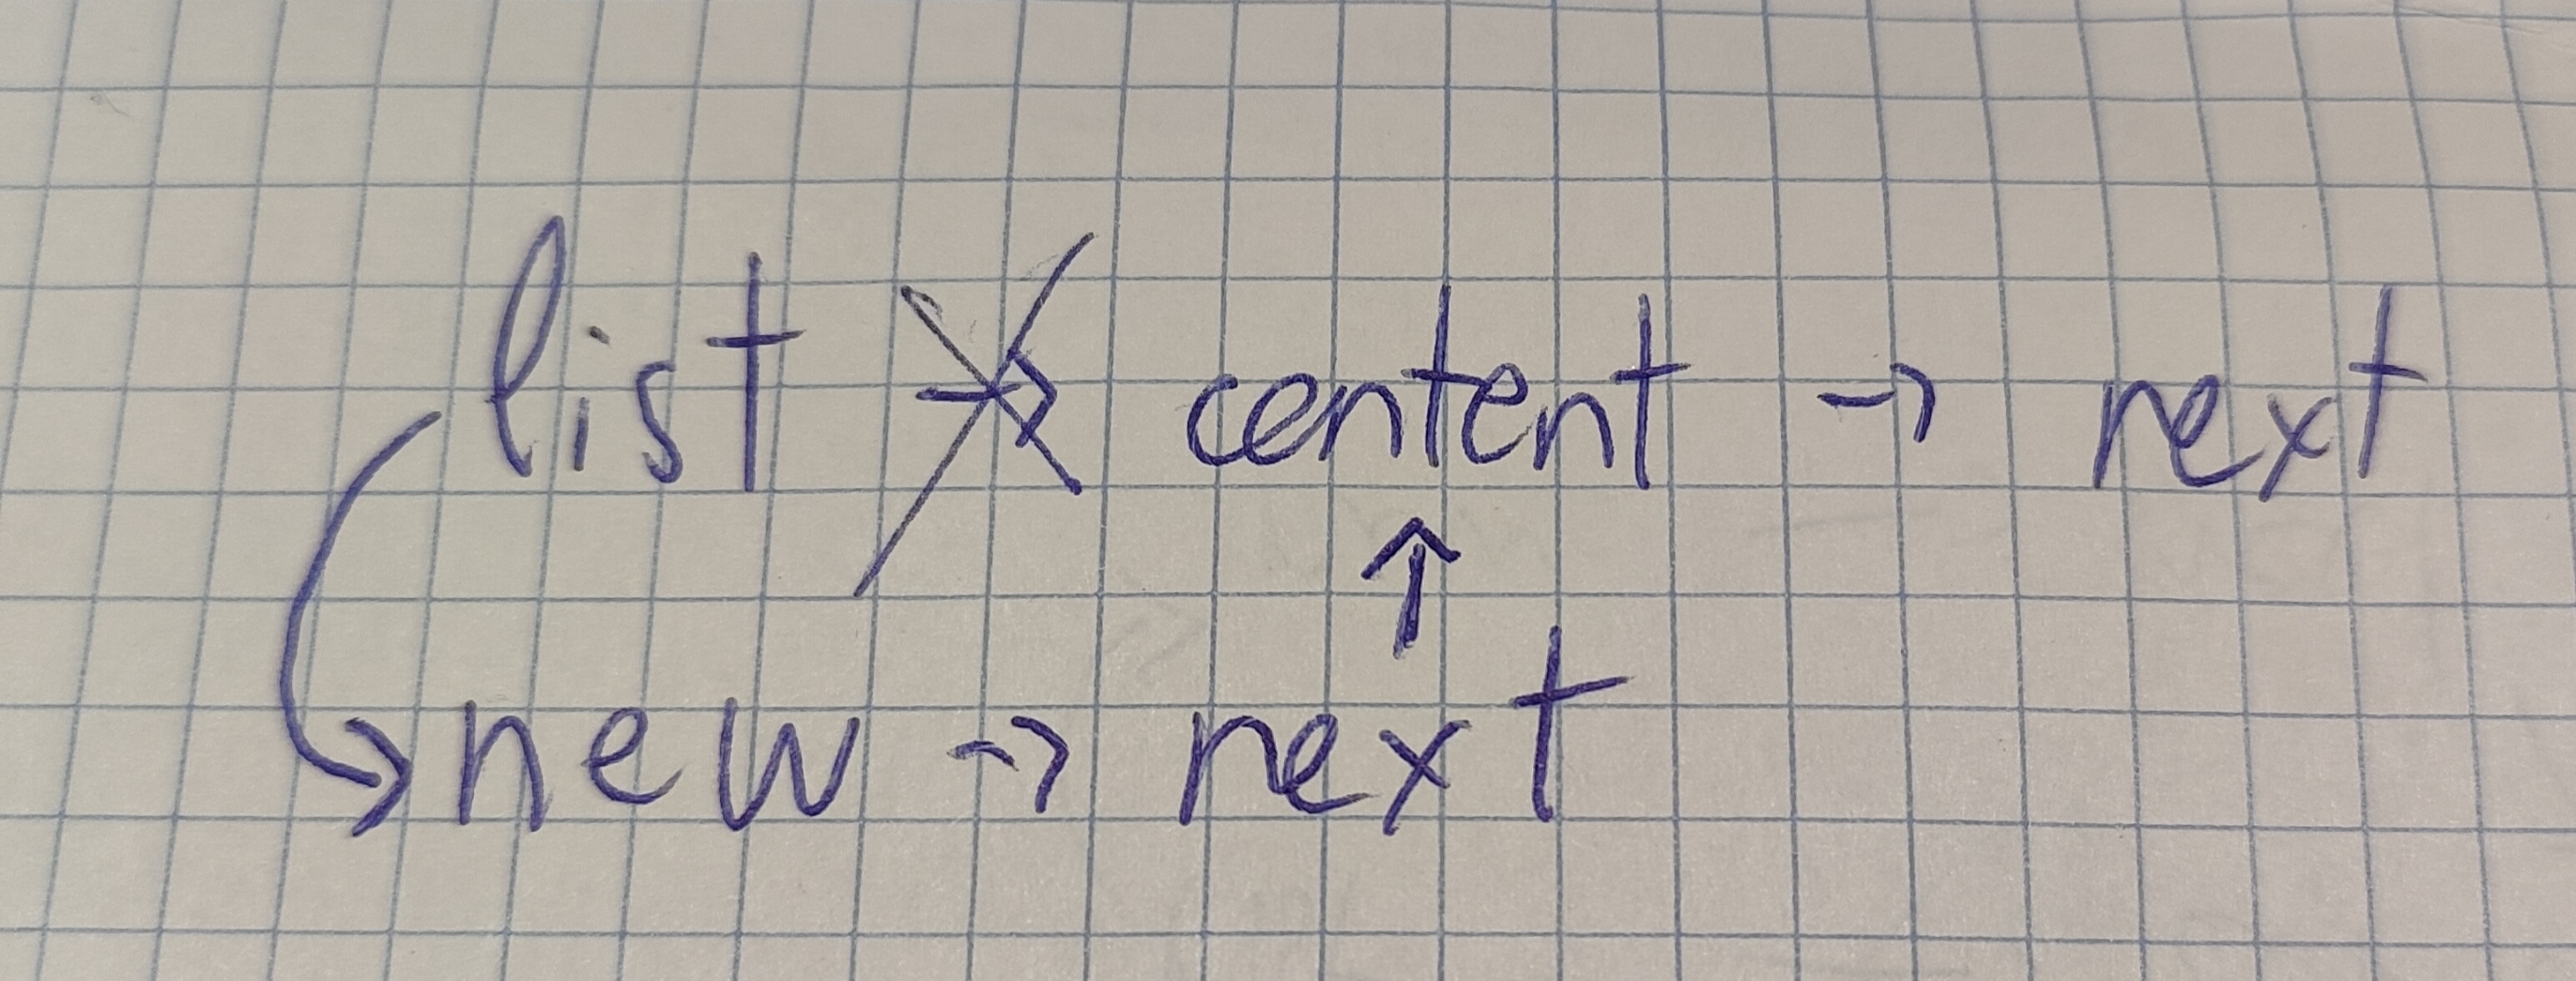 list → content → next
↑
new → next